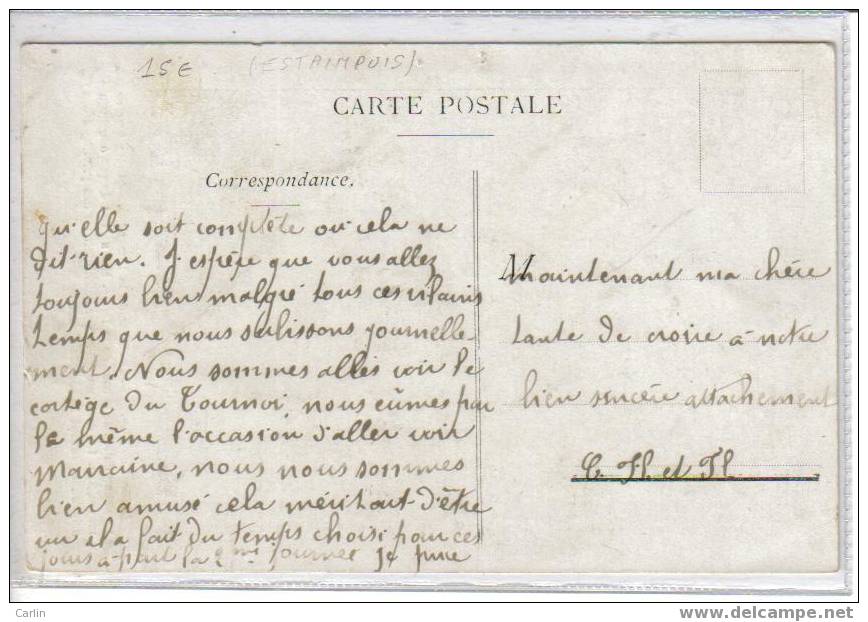 15 E (ESTAIMPUIS)
CARTE POSTALE
Correspondance.
qu'elle soit complète ou cela ne
dit rien. J'espère que vous allez
toujours bien malgré tous ces vilains
temps que nous subissons journelle-
ment. Nous sommes allés voir le
cortège du Tournoi, nous eûmes par
le même l'occasion d'aller voir
Marraine, nous nous sommes
bien amusé cela méritait d'être
vu il a fait du temps choisi pour ces
jours à part la 2me journée
Maintenant ma chère
tante de croire à notre
bien sincère attachement
et
Carlin
www.delcampe.net